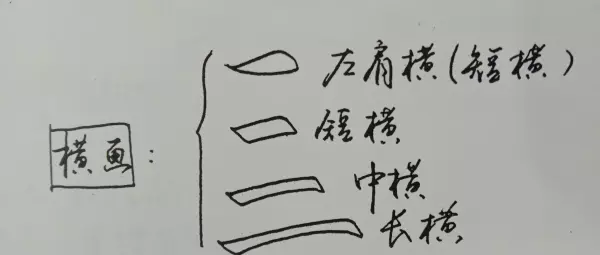 左肩横(短横)
短横
横画:
中横
长横